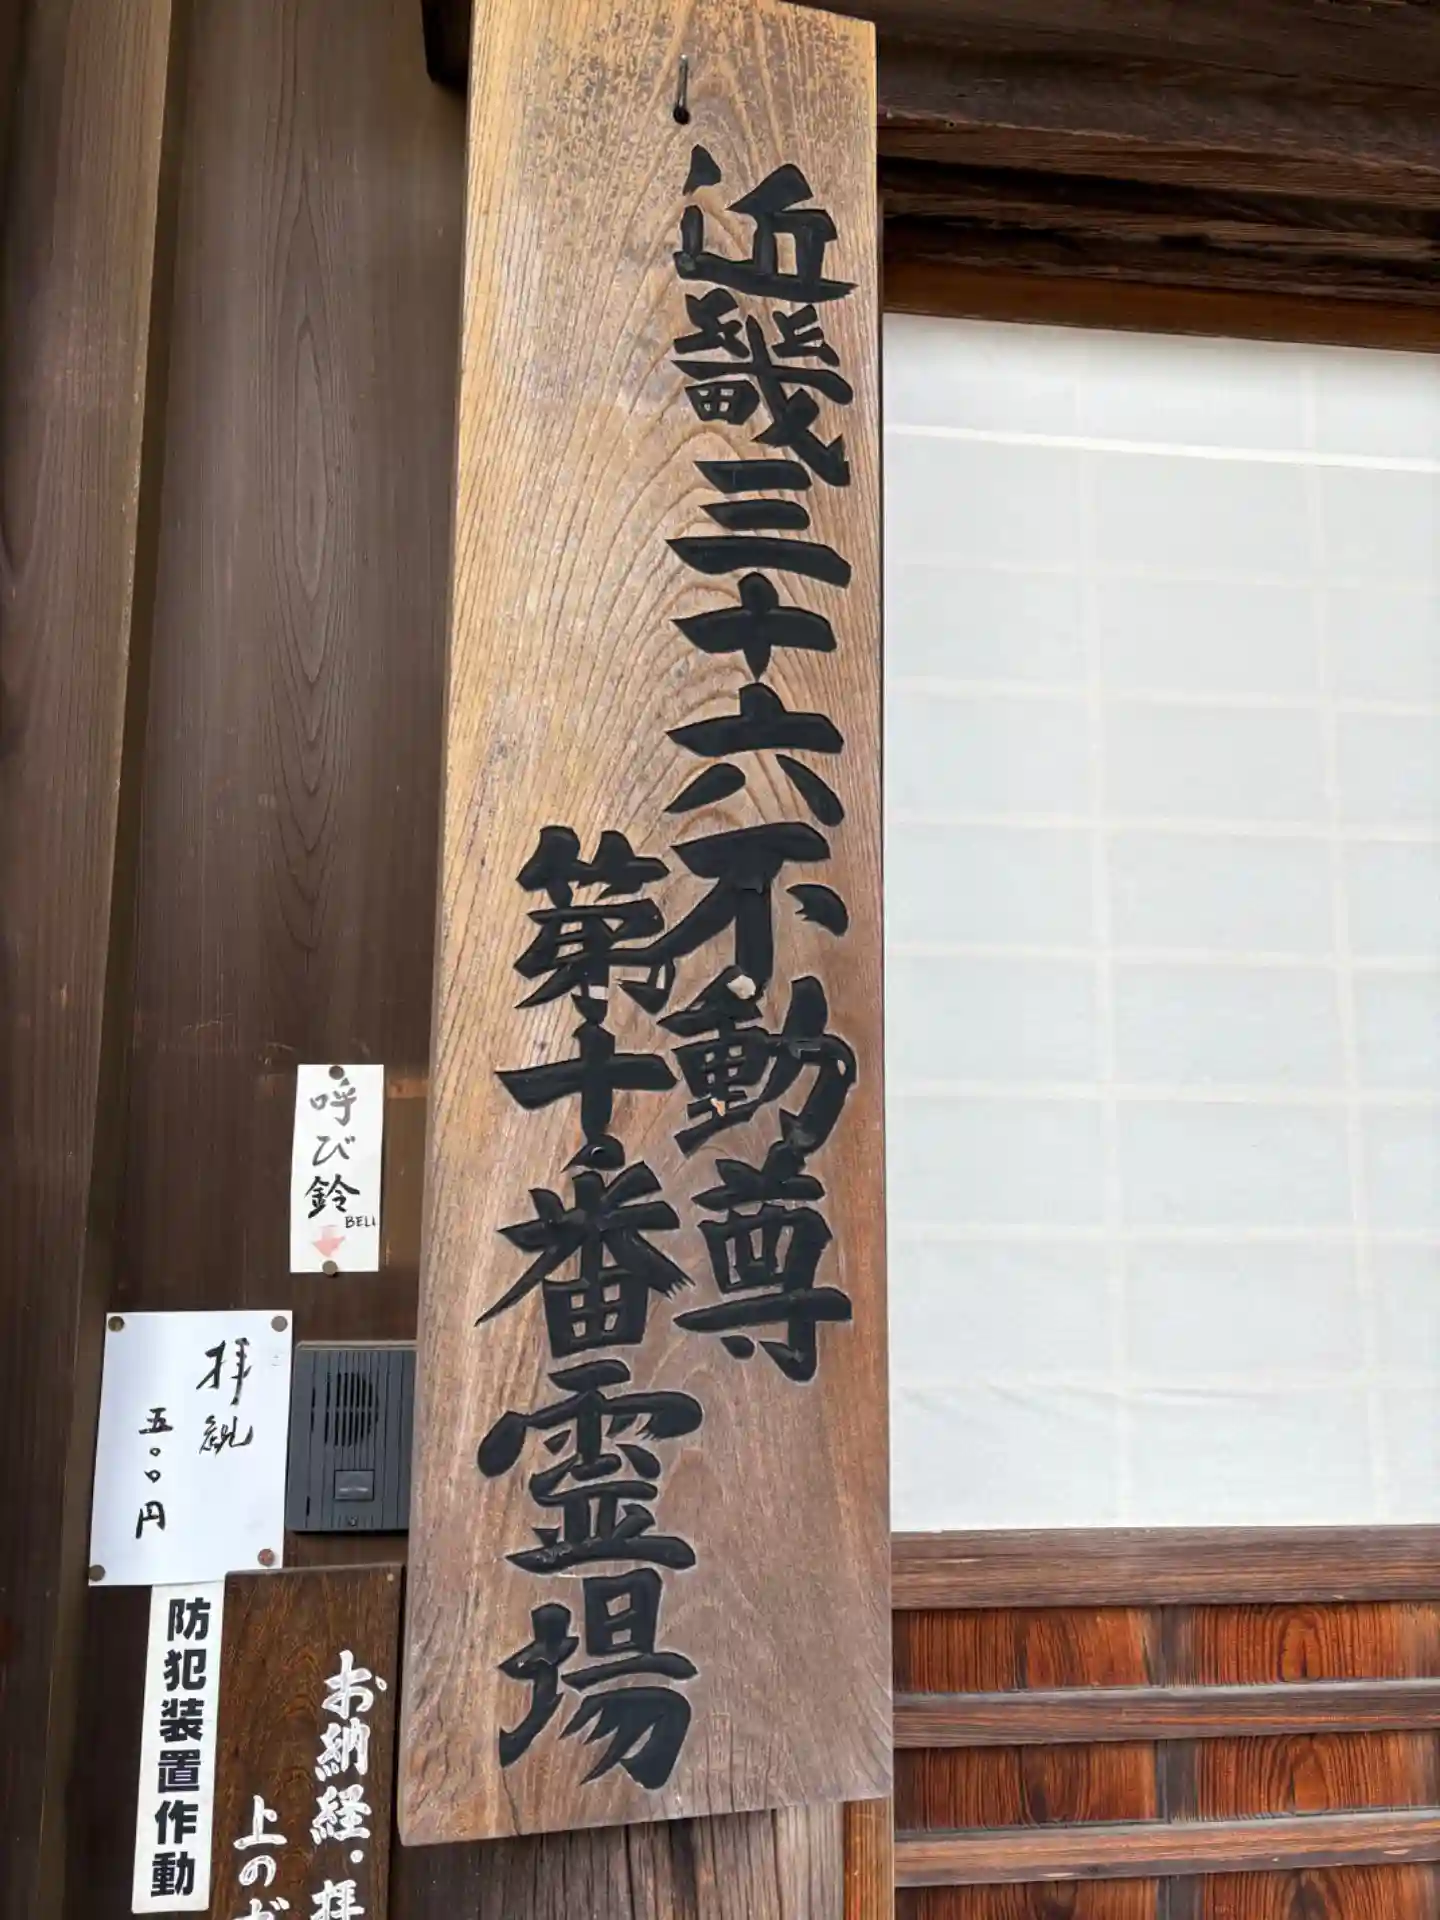 近畿三十六不動尊
第十番霊場
呼び鈴
BELL
拝観
五〇〇円
防犯装置作動
お納経・拝
上のボ